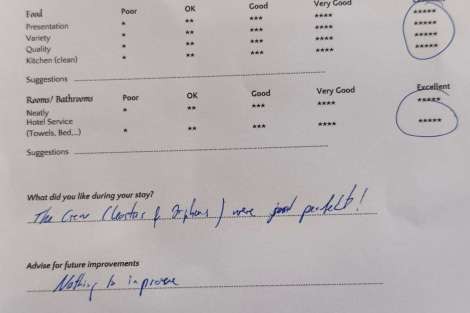 Food Poor OK Good Very Good
Presentation * ** *** **** *****
Variety * ** *** **** *****
Quality * ** *** **** *****
Kitchen (clean) * ** *** **** *****
Suggestions
Rooms/ Bathrooms Poor OK Good Very Good Excellent
Neatly * ** *** **** *****
Hotel Service
(Towels, Bed,..) * ** *** **** *****
Suggestions
What did you like during your stay?
The Crew ( & ) were perfect!
Advise for future improvements
Nothing to improve